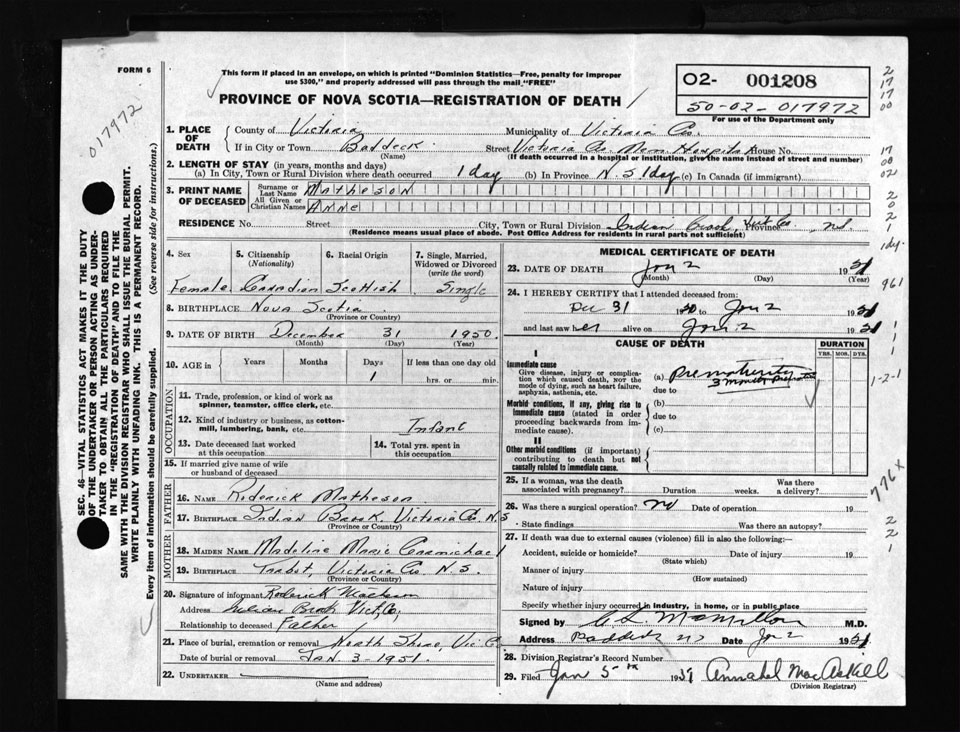 FORM 6
This form if placed in an envelope, on which is printed "Dominion Statistics—Free, penalty for improper
use $300," and properly addressed will pass through the mail "FREE"
O2- 001208
50-02-017972
For use of the Department only
PROVINCE OF NOVA SCOTIA—REGISTRATION OF DEATH
017972
1. PLACE OF DEATH
County of Victoria Municipality of Victoria Co.
If in City or Town Baddeck Street Victoria Co. Mem. Hospital House No.
(Name) (If death occurred in a hospital or institution, give the name instead of street and number)
2. LENGTH OF STAY (in years, months and days)
(a) In City, Town or Rural Division where death occurred 1 day (b) In Province N.S 1 day (c) In Canada (if immigrant)
3. PRINT NAME OF DECEASED
Surname or Last Name Matheson
All Given or Christian Names Anne
RESIDENCE No. Street City, Town or Rural Division Indian Brook, Vict Co. Province
(Residence means usual place of abode. Post Office Address for residents in rural parts not sufficient)
SEC. 46—VITAL STATISTICS ACT MAKES IT THE DUTY
OF THE UNDERTAKER OR PERSON ACTING AS UNDER-
TAKER TO OBTAIN ALL THE PARTICULARS REQUIRED
IN THE "REGISTRATION OF DEATH" AND TO FILE THE
SAME WITH THE DIVISION REGISTRAR WHO SHALL ISSUE THE BURIAL PERMIT.
WRITE PLAINLY WITH UNFADING INK. THIS IS A PERMANENT RECORD.
Every item of information should be carefully supplied. (See reverse side for instructions.)
4. Sex 5. Citizenship (Nationality) 6. Racial Origin 7. Single, Married, Widowed or Divorced (write the word)
Female Canadian Scottish Single
8. BIRTHPLACE Nova Scotia
(Province or Country)
9. DATE OF BIRTH December 31 1950
(Month) (Day) (Year)
10. AGE in Years Months Days If less than one day old
1 hrs. or min.
OCCUPATION
11. Trade, profession, or kind of work as
spinner, teamster, office clerk, etc.
12. Kind of industry or business, as cotton-
mill, lumbering, bank, etc. Infant
13. Date deceased last worked
at this occupation
14. Total yrs. spent in
this occupation
15. If married give name of wife
or husband of deceased
FATHER
16. NAME Roderick Matheson
17. BIRTHPLACE Indian Brook, Victoria Co. N.S
(Province or Country)
MOTHER
18. MAIDEN NAME Madeline Marie Carmichael
19. BIRTHPLACE Tarbot, Victoria Co. N.S.
(Province or Country)
20. Signature of informant Roderick Matheson
Address Indian Brook Vict, Co,
Relationship to deceased Father
21. Place of burial, cremation or removal North Shore, Vic. Co
Date of burial or removal Jan. 3-1951.
22. UNDERTAKER
(Name and address)
MEDICAL CERTIFICATE OF DEATH
23. DATE OF DEATH Jan 2 1951
(Month) (Day) (Year)
24. I HEREBY CERTIFY that I attended deceased from:
Dec 31 1950 to Jan 2 1951
and last saw her alive on Jan 2 1951
CAUSE OF DEATH DURATION
YRS. MOS. DYS.
I
Immediate cause
Give disease, injury or complica-
tion which caused death, not the
mode of dying, such as heart failure,
asphyxia, asthenia, etc.
(a) Prematurity
due to 3 months
Morbid conditions, if any, giving rise to
immediate cause (stated in order
proceeding backwards from im-
mediate cause).
(b)
due to
(c)
II
Other morbid conditions (if important)
contributing to death but not
causally related to immediate cause.
25. If a woman, was the death
associated with pregnancy? Duration weeks. Was there
a delivery?
26. Was there a surgical operation? no Date of operation 19
State findings Was there an autopsy?
27. If death was due to external causes (violence) fill in also the following:—
Accident, suicide or homicide? Date of injury 19
(State which)
Manner of injury
(How sustained)
Nature of injury
Specify whether injury occurred in industry, in home, or in public place
Signed by C. L. McMillan M.D.
Address Baddeck NS Date Jan 2 1951
28. Division Registrar's Record Number
29. Filed Jan 5th 1951 Annabel MacAskill
(Division Registrar)
2
17
17
00
17
00
02
2
0
2
1
1dy.
961
1
1
1
1-2-1
776x
2
2
1